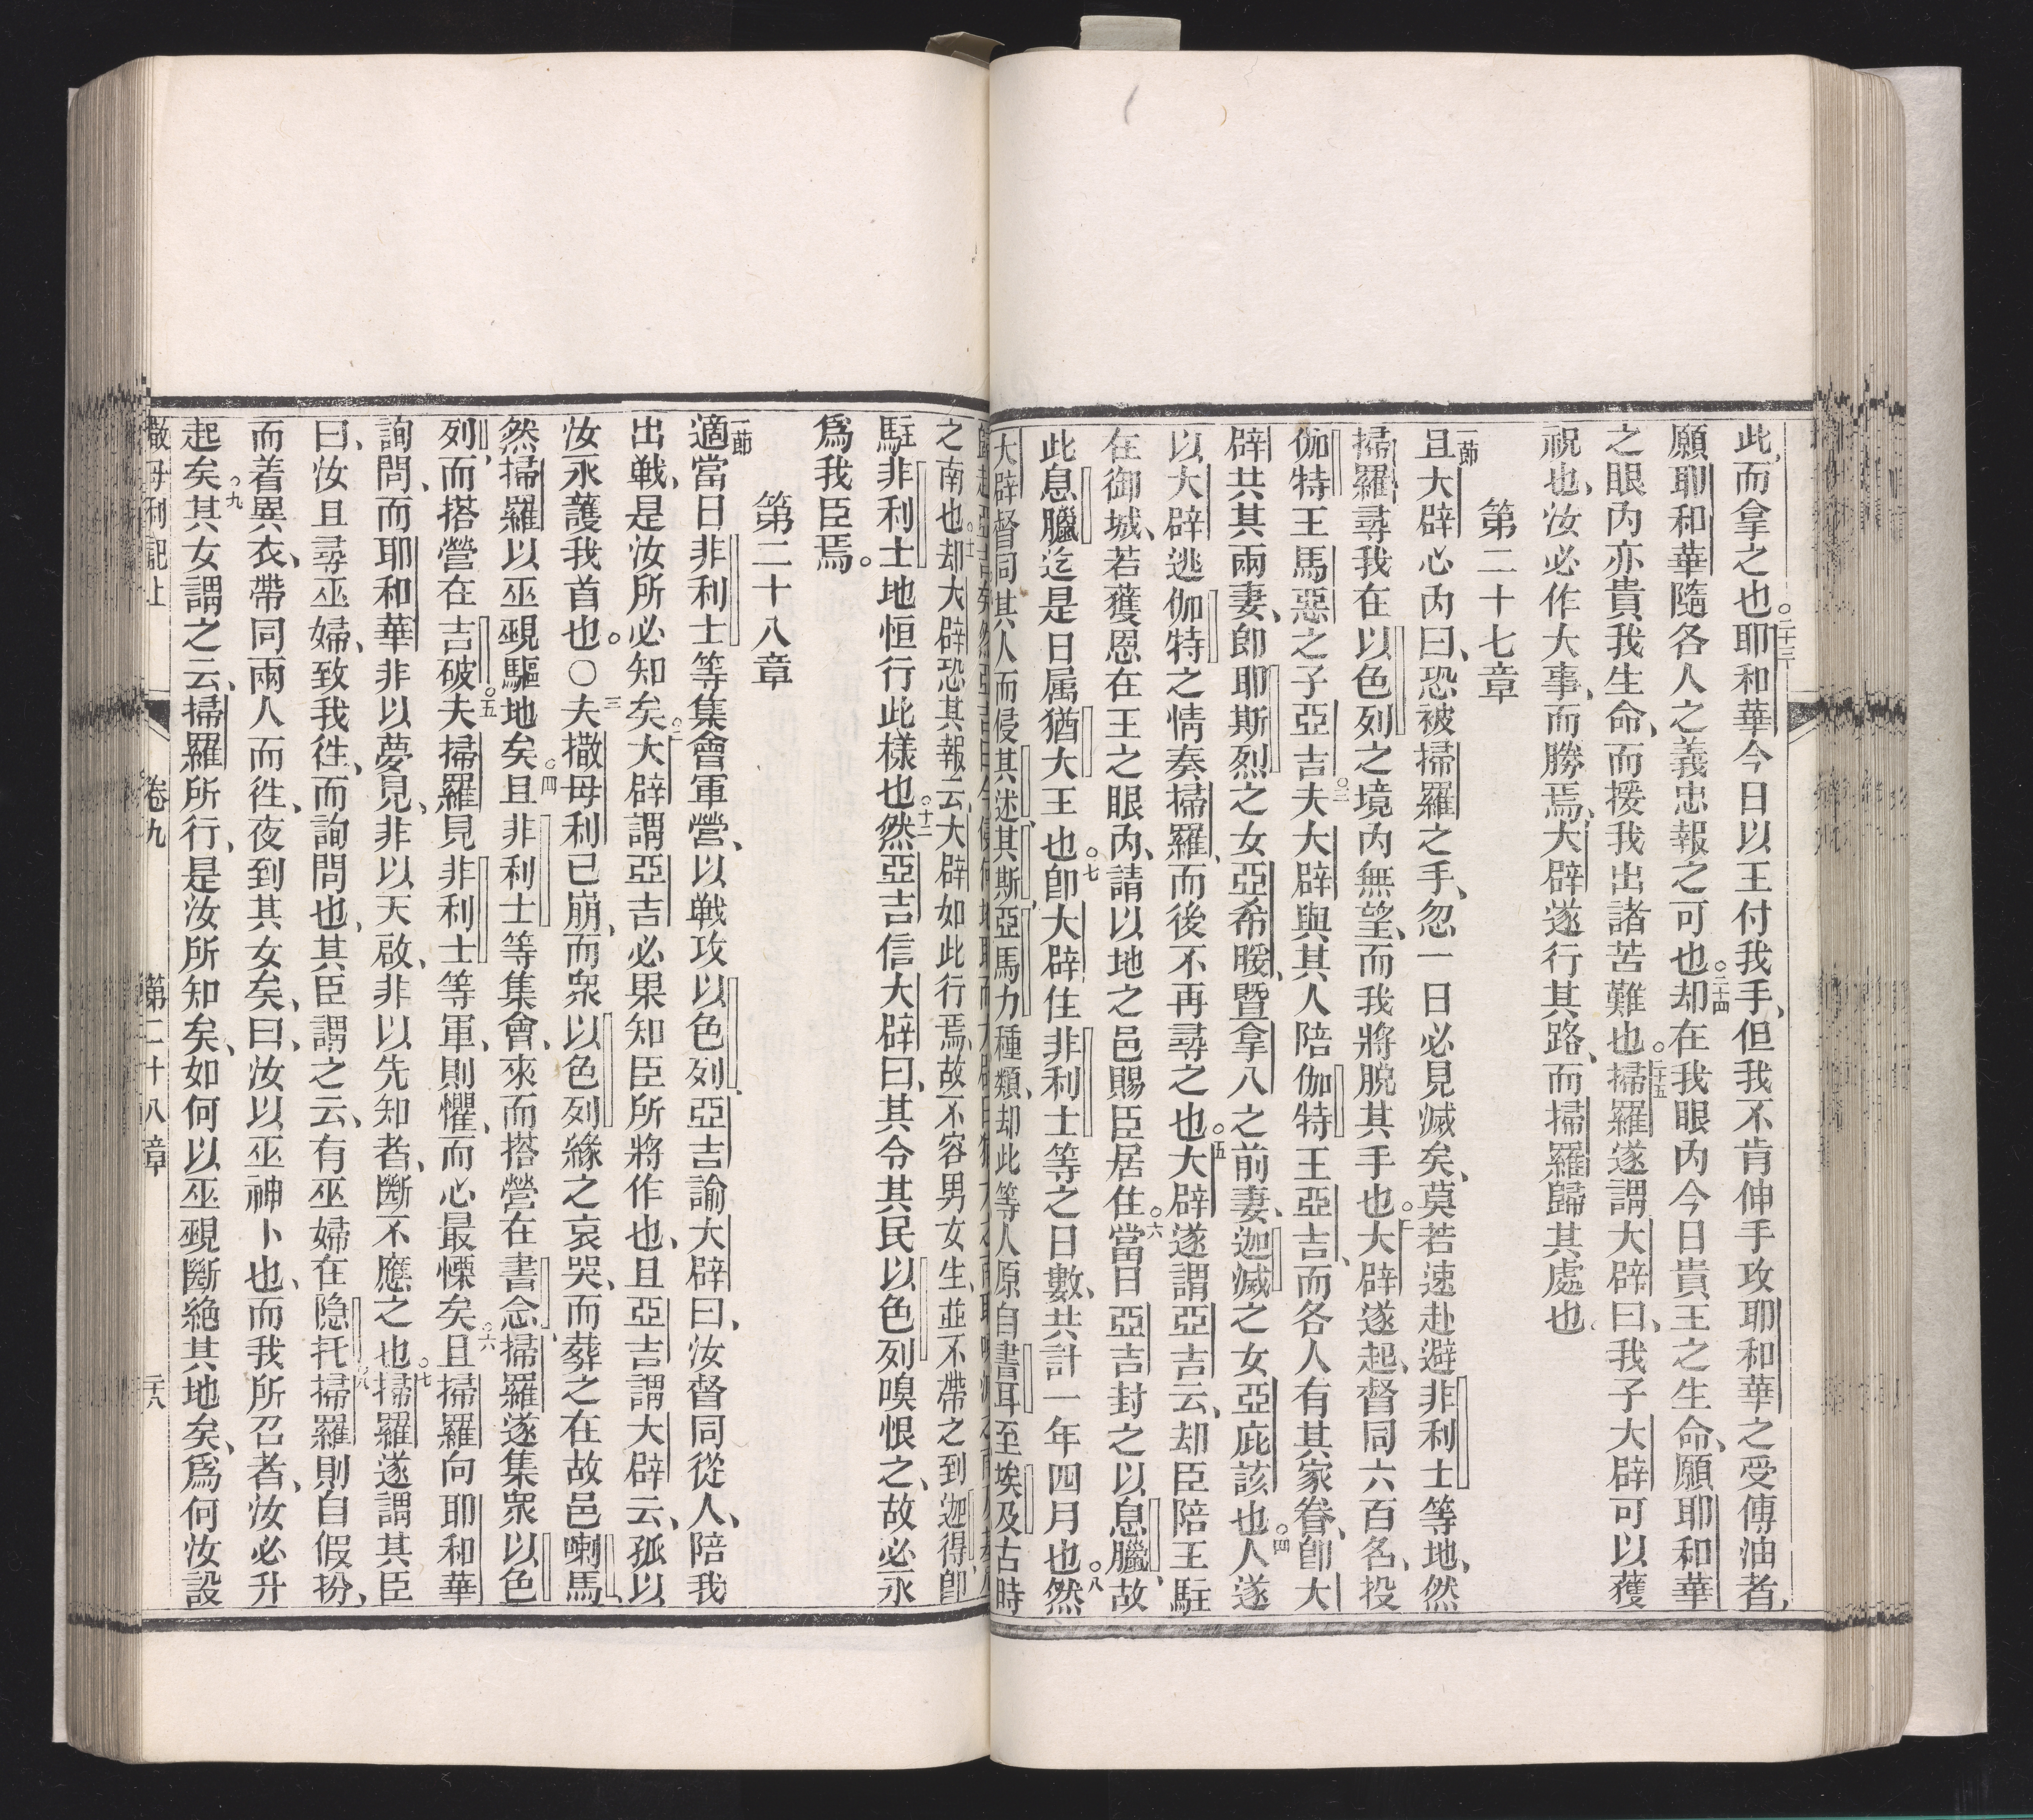 此、而拿之也。二十三耶和華今日以王付我手、但我不肯伸手攻耶和華之受傅油者、
願耶和華隨各人之義忠報之可也。二十四却在我眼內今日貴王之生命、願耶和華
之眼內亦貴我生命、而援我出諸苦難也。二十五掃羅遂謂大辟曰、我子大辟可以獲
祝也、汝必作大事、而勝焉、大辟遂行其路、而掃羅歸其處也。
第二十七章
一節且大辟心內曰、恐被掃羅之手、忽一日必見滅矣、莫若速赴避非利士等地、然
掃羅尋我在以色列之境內無望、而我將脫其手也。二大辟遂起、督同六百名、投
伽特王馬惡之子亞吉。三夫大辟與其人陪伽特王亞吉、而各人有其家眷、卽大
辟共其兩妻、卽耶斯烈之女亞希暖、暨拿八之前妻、迦滅之女亞庇該也。四人遂
以大辟逃伽特之情奏掃羅、而後不再尋之也。五大辟遂謂亞吉云、却臣陪王駐
在御城、若獲恩在王之眼內、請以地之邑賜臣居住。六當日亞吉封之以息臘、故
此息臘迄是日属猶大王也。七卽大辟住非利士等之日數、共計一年四月也。八然
大辟督同其人而侵其述、其斯、亞馬力種類、却此等人原自書耳至埃及古時
之南也。十一却大辟恐其報云、大辟如此行焉、故不容男女生、並不帶之到迦得、卽
駐非利士地恒行此樣也。十二然亞吉信大辟曰、其令其民以色列嗅恨之、故必永
爲我臣焉。
第二十八章
一節適當日非利士等集會軍營、以戦攻以色列、亞吉諭大辟曰、汝督同從人、陪我
出戦、是汝所必知矣。二大辟謂亞吉必果知臣所將作也、且亞吉謂大辟云、孤以
汝永護我首也。○三夫撒母利已崩、而衆以色列緣之哀哭、而葬之在故邑喇馬、
然掃羅以巫覡驅地矣。四且非利士等集會、來而搭營在書念、掃羅遂集衆以色
列、而搭營在吉破。五夫掃羅見非利士等軍、則懼、而心最慄矣。六且掃羅向耶和華
詢問、而耶和華非以夢見、非以天啟、非以先知者、斷不應之也。七掃羅遂謂其臣
曰、汝且尋巫婦、致我徃、而詢問也、其臣謂之云、有巫婦在隐托。八掃羅則自假扮、
而着異衣、帶同兩人而徃、夜到其女矣、曰、汝以巫神卜也、而我所召者、汝必升
起矣。九其女謂之云、掃羅所行、是汝所知矣、如何以巫覡斷絶其地矣、爲何汝設
撒母利記上 卷九 第二十八章 二十八